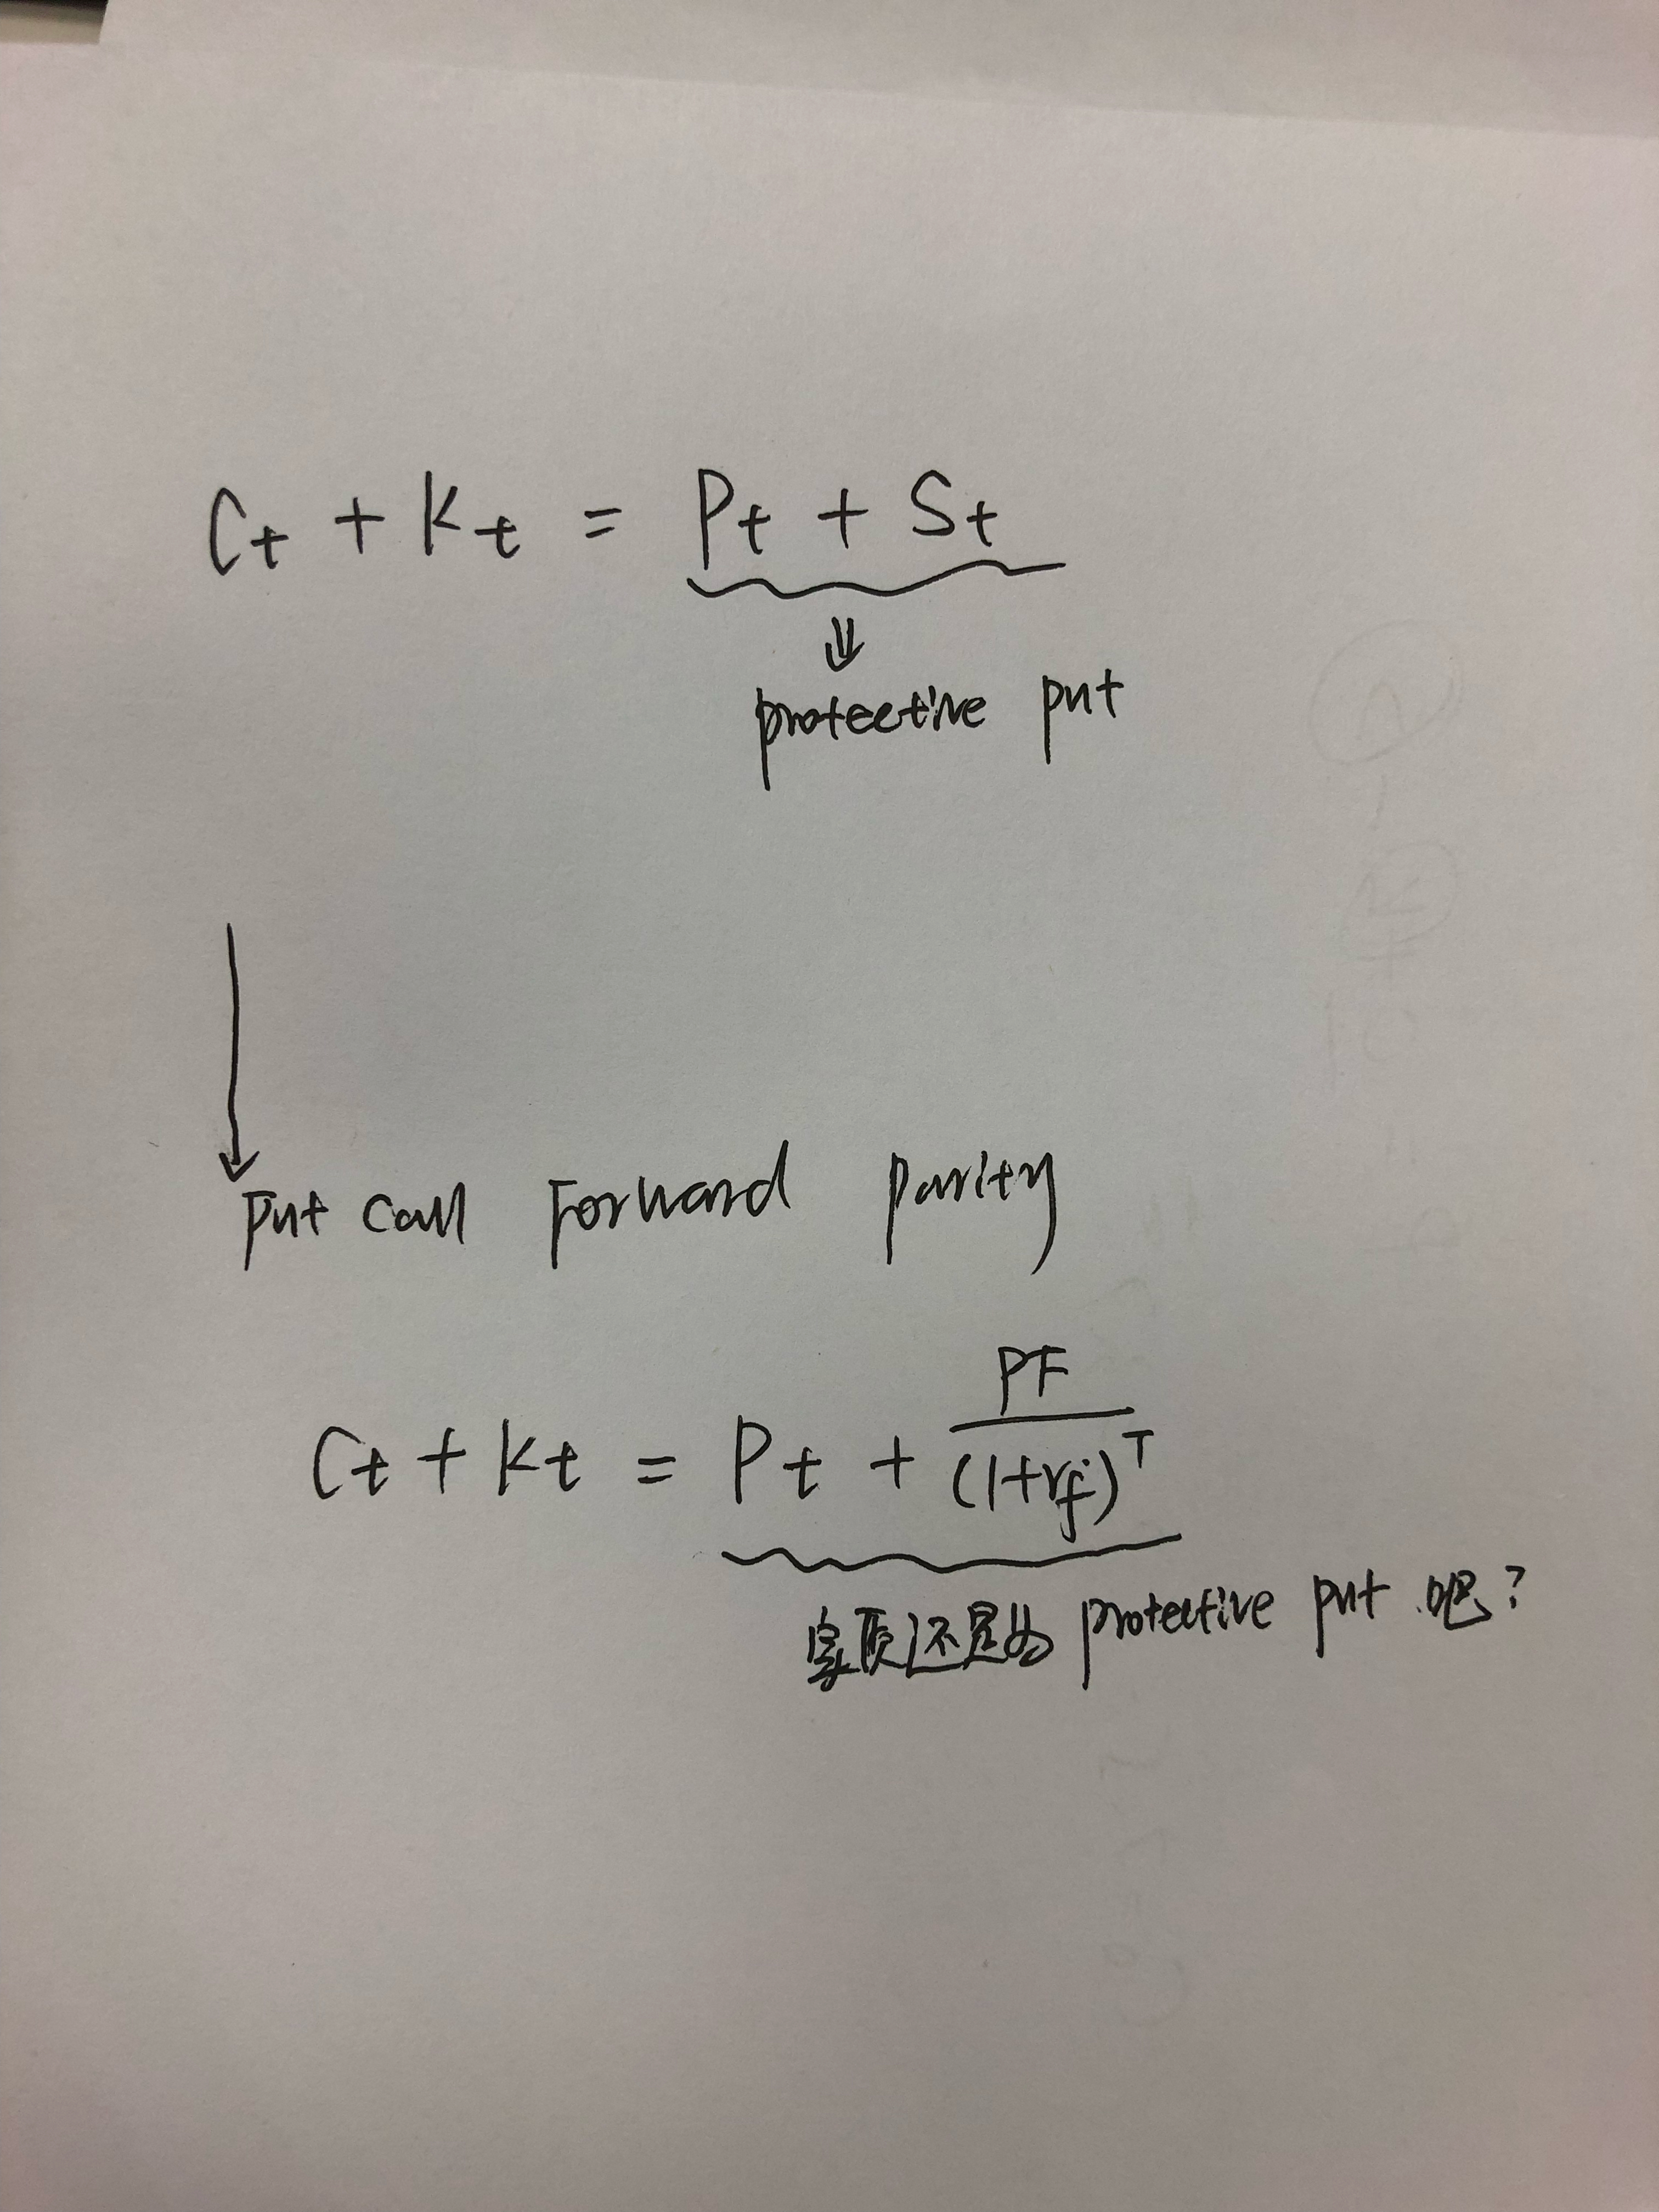 Ct + Kt = Pt + St
⇓
protective put
↓
Put Call Forward parity
Ct + Kt = Pt + PF/(1+rf)^T
实质还是为 protective put 吧?